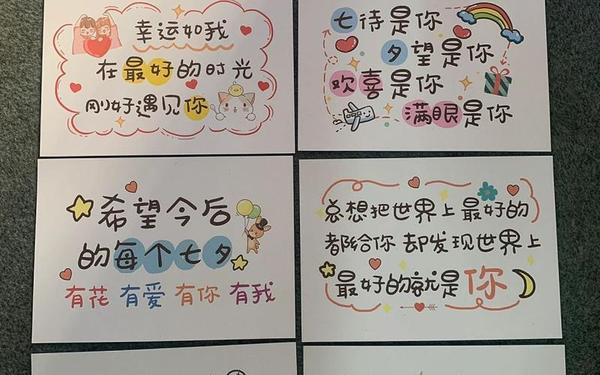 幸运如我
在最好的时光
刚好遇见你
七待是你
夕望是你
欢喜是你
满眼是你
希望今后
的每个七夕
有花 有爱 有你 有我
总想把世界上最好的
都给你 却发现世界上
最好的就是你